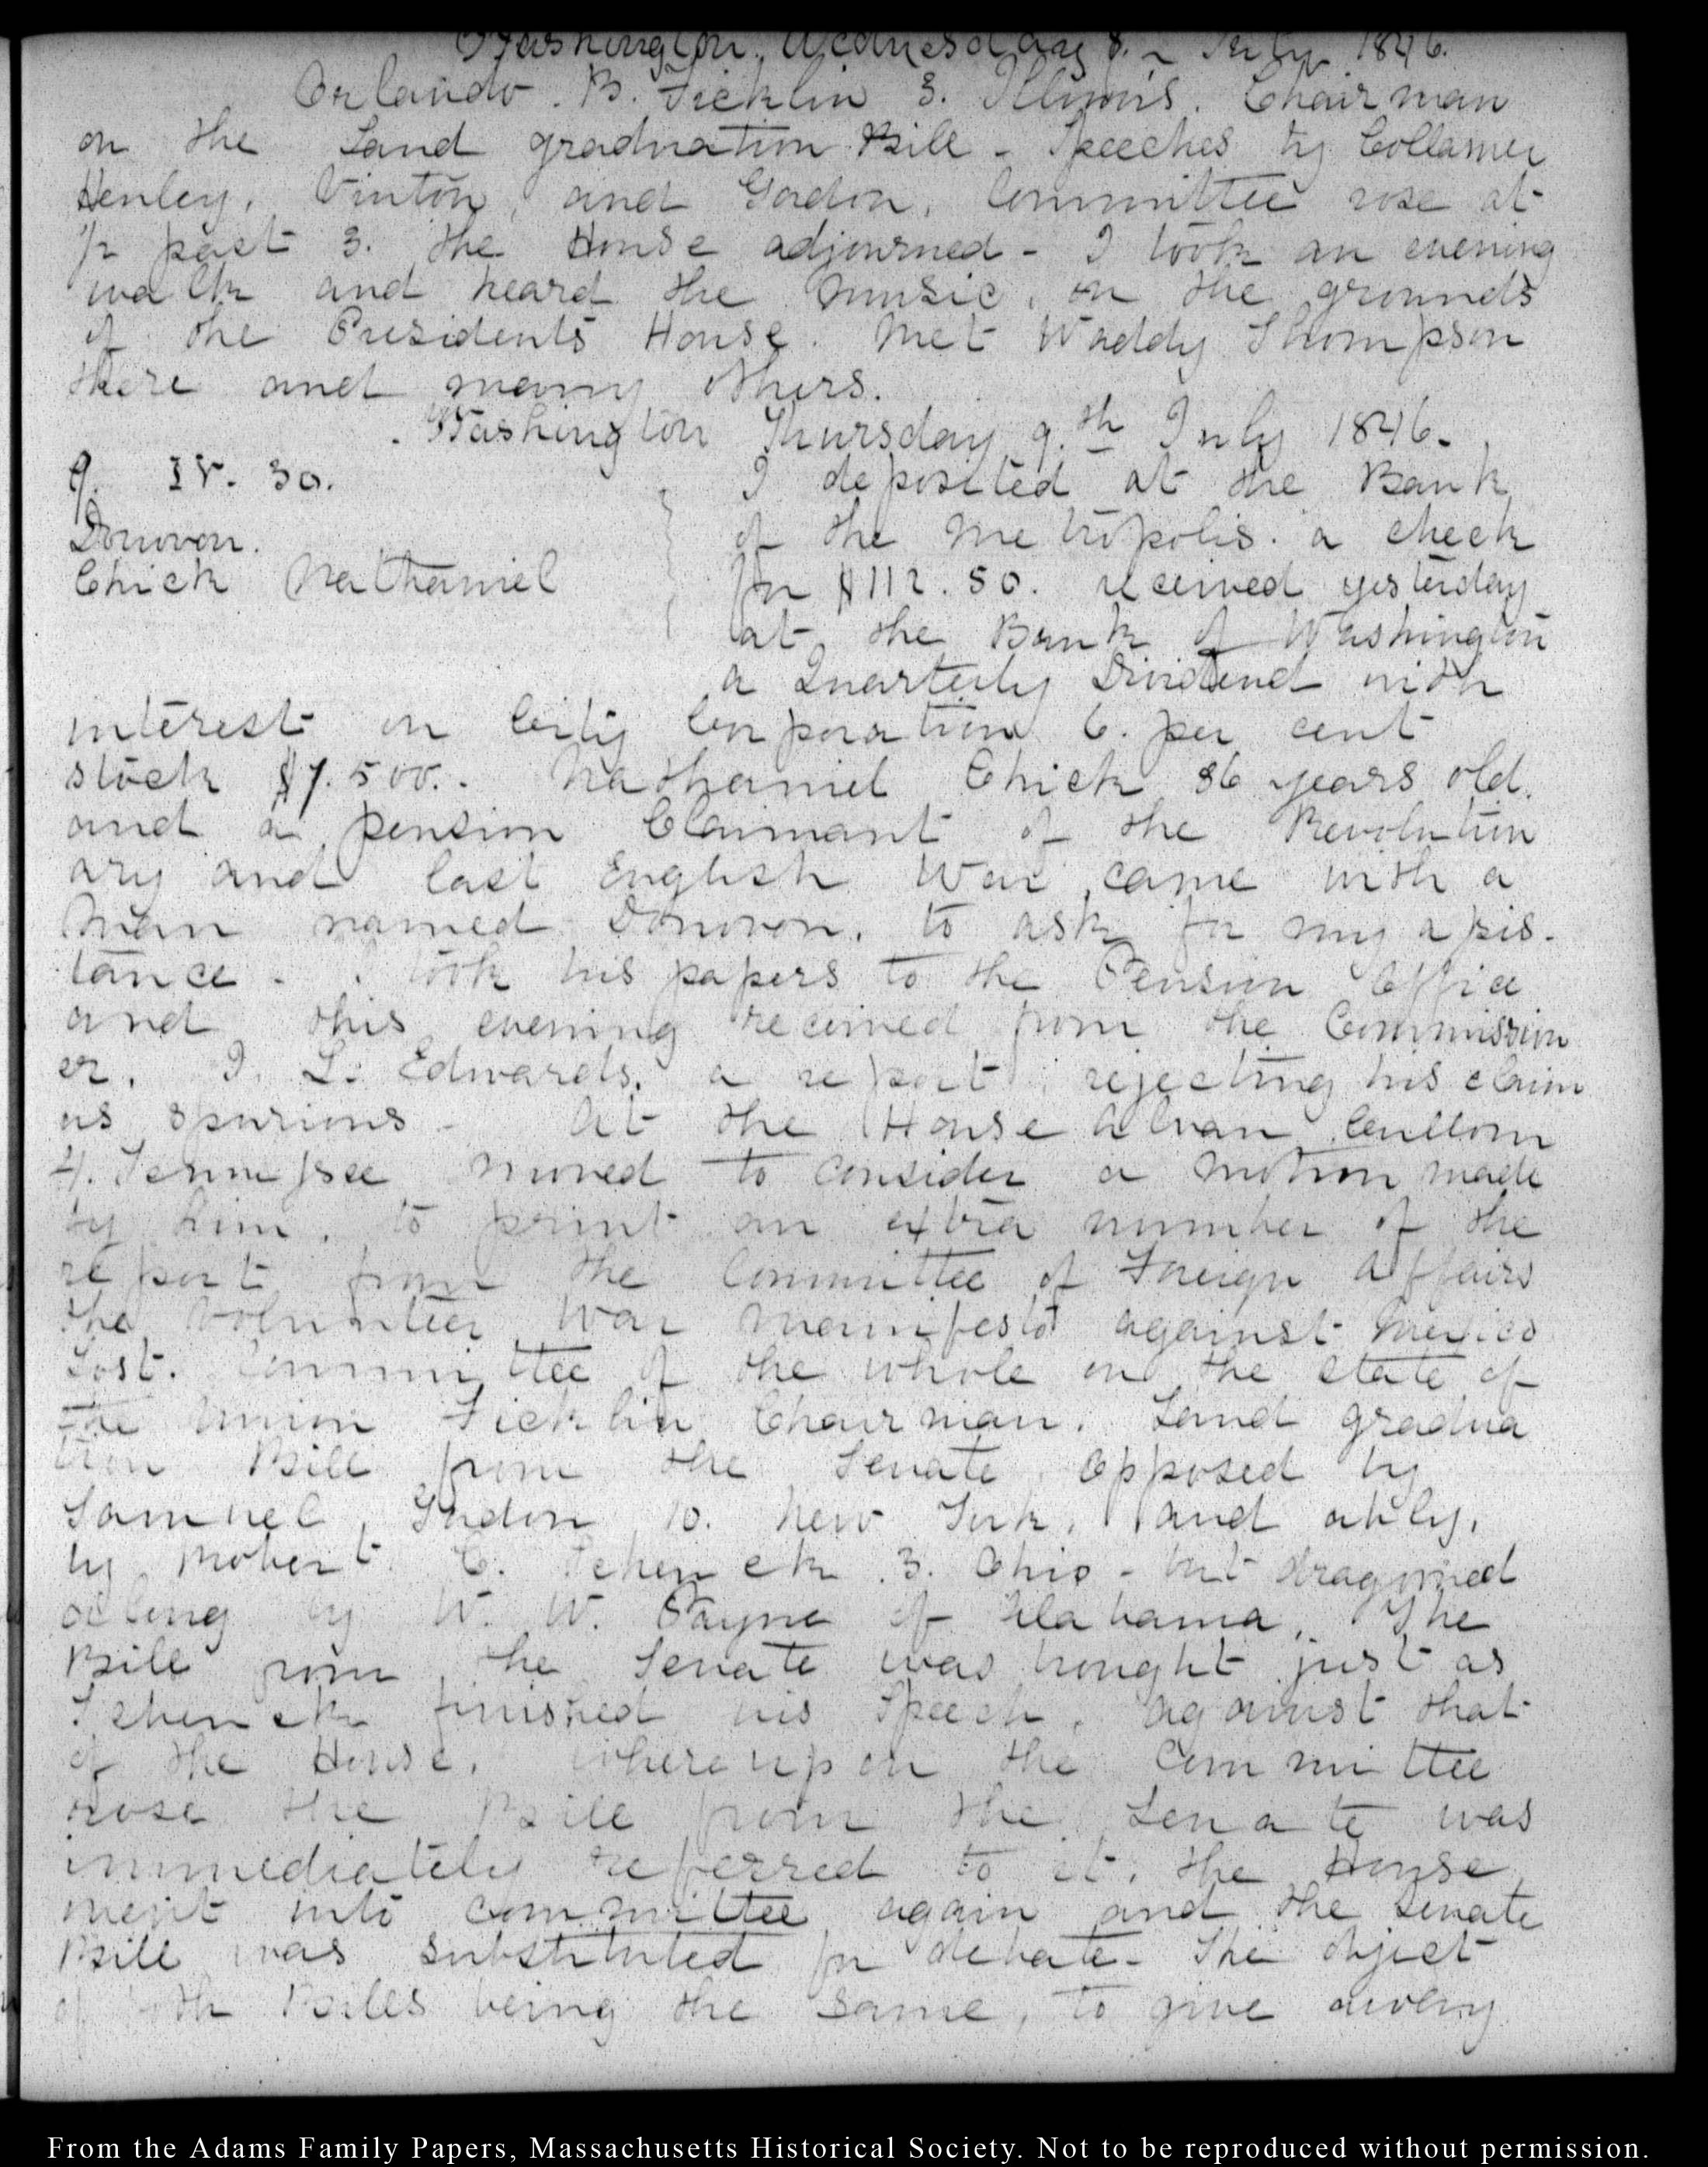 Washington. Wednesday 8. - July 1846.
Orlando. B. Ficklin 3. Illinois. Chairman
on the Land graduation Bill - Speeches by Collamer
Henley, Vinton, and Gordon, Committee rose at
1/2 past 3. the House adjourned - I took an evening
walk and heard the music, on the grounds
of the Presidents House. Met Waddy Thompson
there and many others.
Washington Thursday 9.th July 1846.
9. IV. 30.
Donovon.
Chick Nathaniel
I deposited at the Bank
of the Metropolis. a check
for $112.50. received yesterday
at the Bank of Washington
a Quarterly Dividend with
interest on City Corporation 6. per cent
stock $7.500.. Nathaniel Chick 86 years old.
and a pension Claimant of the Revolution
ary and last English War, came with a
Man named Donovon, to ask for my assis-
tance - I took his papers to the Pension Office
and this evening received from the Commission
er, J. L. Edwards, a report rejecting his claim
as spurious - At the House Alvan Cullom
4. Tennessee moved to consider a motion made
by him, to print an extra number of the
report from the Committee of Foreign Affairs
the Volunteer War manifesto against Mexico
Lost. Committee of the whole on the state of
the Union Ficklin Chairman. Land gradua
tion Bill from the Senate opposed by
Samuel Gordon 10. New York, and ably,
by Robert C. Schenck 3. Ohio - but dragooned
along by W. W. Payne of Alabama, The
Bill from the Senate was brought just as
Schenck finished his Speech, against that
of the House, whereupon the Committee
rose the Bill from the Senate was
immediately referred to it, the House
went into committee again and the Senate
Bill was substituted for debate - The object
of both Bills being the same, to give away
From the Adams Family Papers, Massachusetts Historical Society. Not to be reproduced without permission.